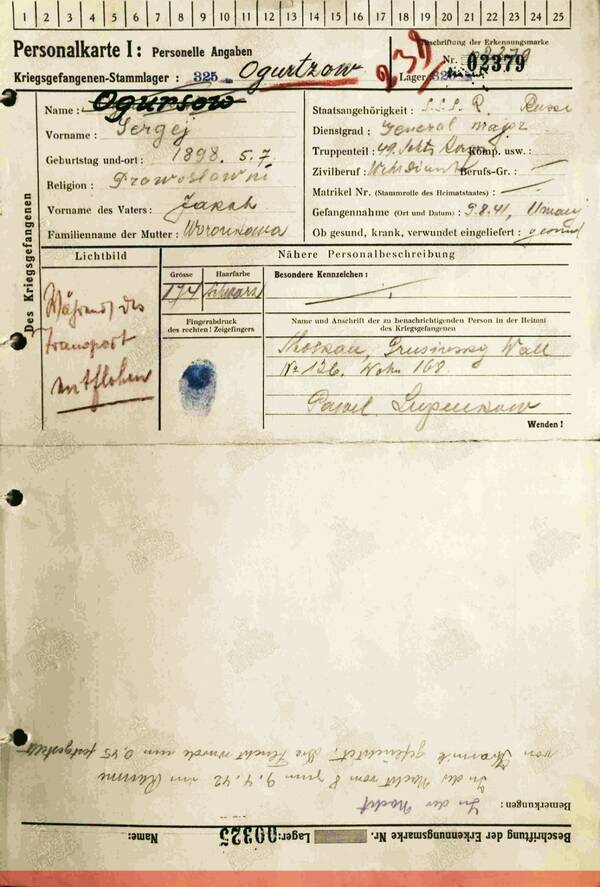 1 2 3 4 5 6 7 8 9 10 11 12 13 14 15 16 17 18 19 20 21 22 23 24 25
Personalkarte I: Personelle Angaben
Beschriftung der Erkennungsmarke
Nr. 02379
Kriegsgefangenen-Stammlager: 325 Ogurtzow
239
Lager: 325
Des Kriegsgefangenen
Name: Ogursow
Vorname: Sergej
Geburtstag und-ort: 1898. 5.7.
Religion: Prawoslawni
Vorname des Vaters: Jakob
Familienname der Mutter: Woronkowa
Staatsangehörigkeit: S.S.S.R. Russe
Dienstgrad: General major
Truppenteil: 49. Komp. usw.:
Zivilberuf: Berufs-Gr.: —
Matrikel Nr. (Stammrolle des Heimatstaates): —
Gefangennahme (Ort und Datum): 9.8.41, Umanj
Ob gesund, krank, verwundet eingeliefert: gesund
Lichtbild
Während des
transport
entflohen
Nähere Personalbeschreibung
Grösse
174
Haarfarbe
schwarz
Besondere Kennzeichen:
Fingerabdruck
des rechten! Zeigefingers
Name und Anschrift der zu benachrichtigenden Person in der Heimat
des Kriegsgefangenen
Moskau, Grusinsky Wall
No 126. Wohn 168
Pawel
Wenden!
Beschriftung der Erkennungsmarke Nr. Lager: 00325 Name:
Bemerkungen: In der Nacht
In der Nacht vom 8 zum 9.4.42 im
von geflüchtet. Die Flucht wurde um 0.45 festgestellt